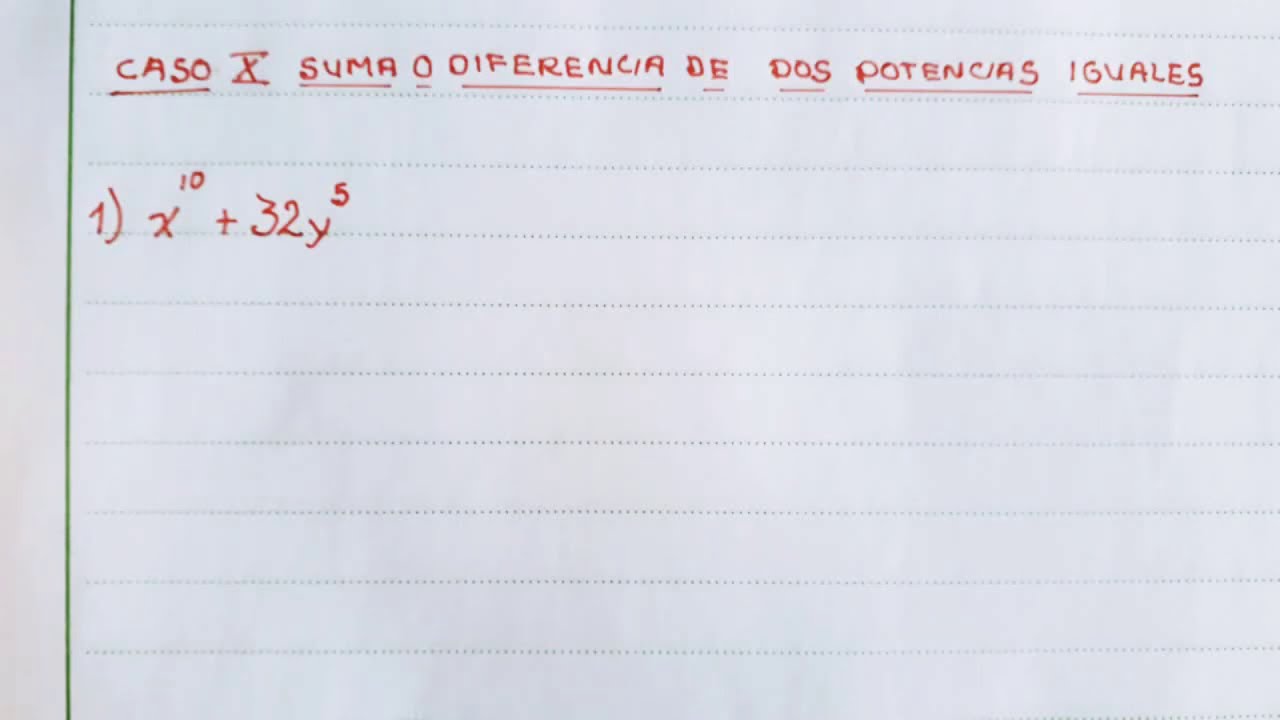 CASO X SUMA O DIFERENCIA DE DOS POTENCIAS IGUALES
1) x¹⁰ + 32y⁵